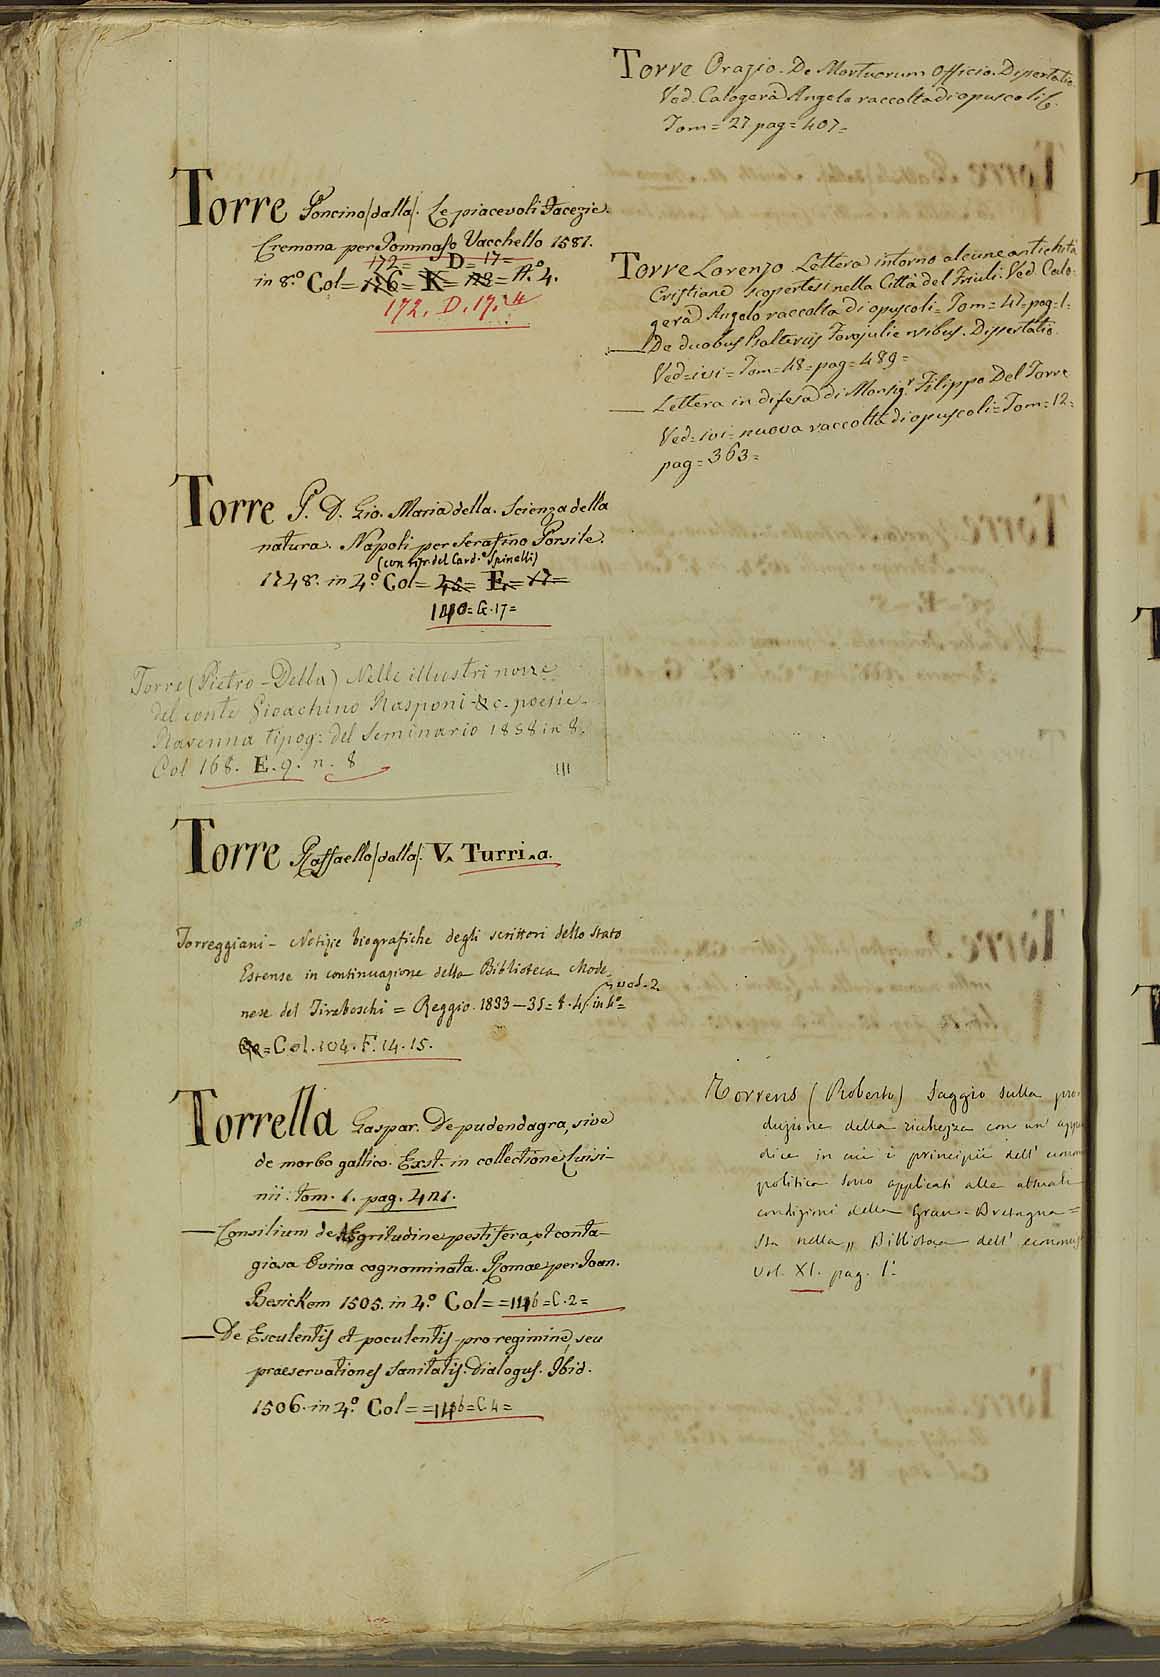 Torre Poncino/dalla/. Le piacevoli Facezie.
Cremona per Tommaso Vacchello 1581.
172= D= 17=
in 8.º Col= 126= K= 128= N.º 4.
172. D. 17. 4
Torre P. D. Gio. Maria della. Scienza della
natura. Napoli per Serafino Porsile.
(con ritr. del Card.e Spinelli)
1748. in 4.º Col= E.= 17=
140= G. 17=
Torre (Pietro-Della) Nelle illustri nozze
del conte Gioachino Rasponi &c. poesie.
Ravenna tipog: del Seminario 1858 in 8.
Col 168. E. 9. n. 8
Torre Raffaello/dalla/. V. Turri. a.
Torreggiani - Notizie biografiche degli scrittori dello Stato
Estense in continuazione della Biblioteca Mode_
vol. 2
nese del Tiraboschi = Reggio. 1833-35= in
= Col. 104. F. 14. 15.
Torrella Gaspar. De pudendagra, sive
de morbo gallico. Exst. in collectione Luisi-
nii: tom. 1. pag. 421.
— Consilium de AEgritudine pestifera, et conta-
giosa Ovina cognominata. Romae per Ioan.
Besicken 1505. in 4.º Col= =146=C.2=
— De Esculentis et poculentis pro regimine, seu
praeservationes Sanitatis. Dialogus. Ibid.
1506. in 4.º Col= =146=C.4=
Torre Orazio. De Mortuorum Officio. Disertatio
Ved. Calogerà Angelo raccolta di opuscoli &.
Tom= 27 pag= 407=
Torre Lorenzo. Lettera intorno alcune antichità
Cristiane scopertesi nella Città del Friuli. Ved. Calo-
gerà Angelo raccolta di opuscoli= Tom= 47= pag=1=
— De duobus Psalteriis Forojuliensibus. Dissertatio.
Ved= ivi= Tom= 48= pag= 489=
— Lettera in difesa di Monsig.r Filippo Del Torre
Ved= ivi= nuova raccolta di opuscoli= Tom= 12=
pag= 363=
Torrens (Roberto) Saggio sulla pro-
duzione della ricchezza con un' appen
dice in cui i principii dell' econom
politica sono applicati alle attuali
condizioni della Gran-Bretagna=
Sta nella „ Biblioteca dell' economis
Vol. XI. pag. 1.